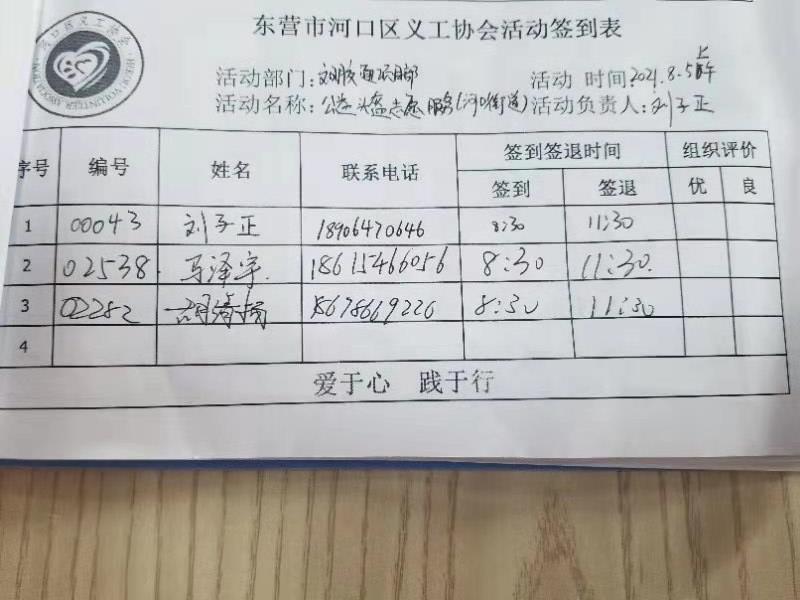 东营市河口区义工协会活动签到表
活动部门: 活动 时间:2021.8.5 上午
活动名称: 公益头盔志愿服务(河口街道) 活动负责人: 刘子正
序号 编号 姓名 联系电话 签到签退时间 组织评价
签到 签退 优 良
1 00043 刘子正 18906470646 8:30 11:30
2 02538 马泽宇 18615466056 8:30 11:30
3 02282 8:30 11:30
4
爱于心 践于行